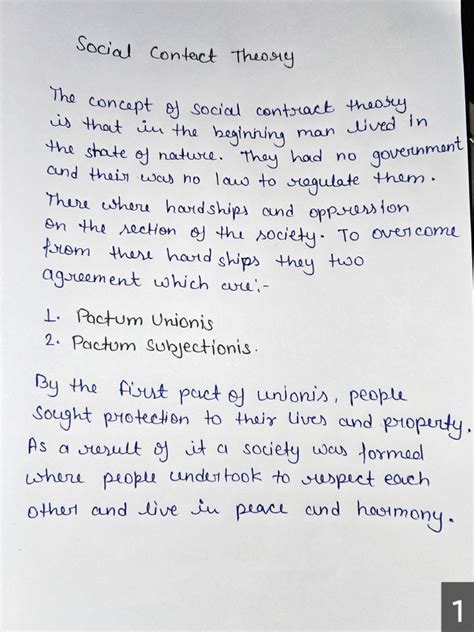 Social Contect Theory
The concept of social contract theory
is that in the beginning man lived in
the state of nature. They had no government
and their was no law to regulate them.
There where hardships and oppression
on the section of the society. To overcome
from there hardships they two
agreement which are:-
1. Pactum Unionis
2. Pactum Subjectionis.
By the first pact of unionis, people
sought protection to their lives and property.
As a result of it a society was formed
where people undertook to respect each
other and live in peace and harmony.
1